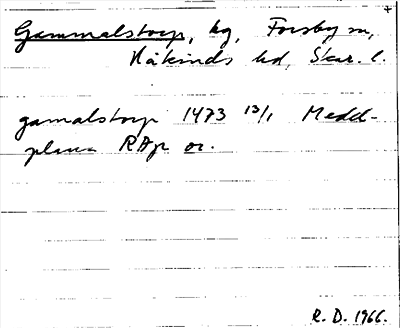 Gammalstorp, hg, Forsby sn,
Kåkinds hd, Skar. l.
gamalstorp 1473 13/1 Medel-
plana RAp or.
R. D. 1966.